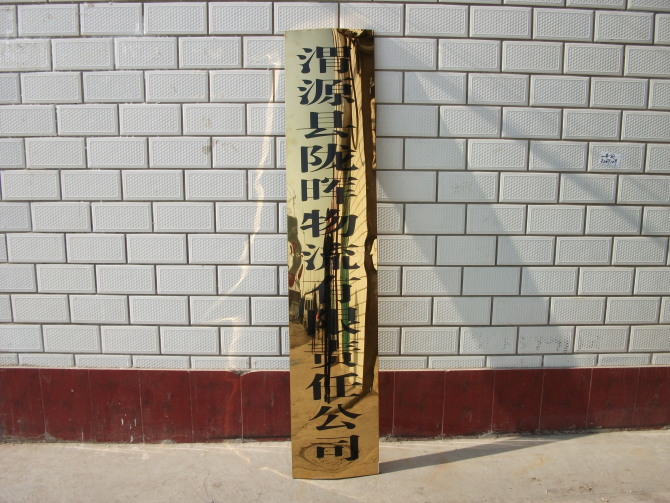 渭源县陇晖物流有限责任公司